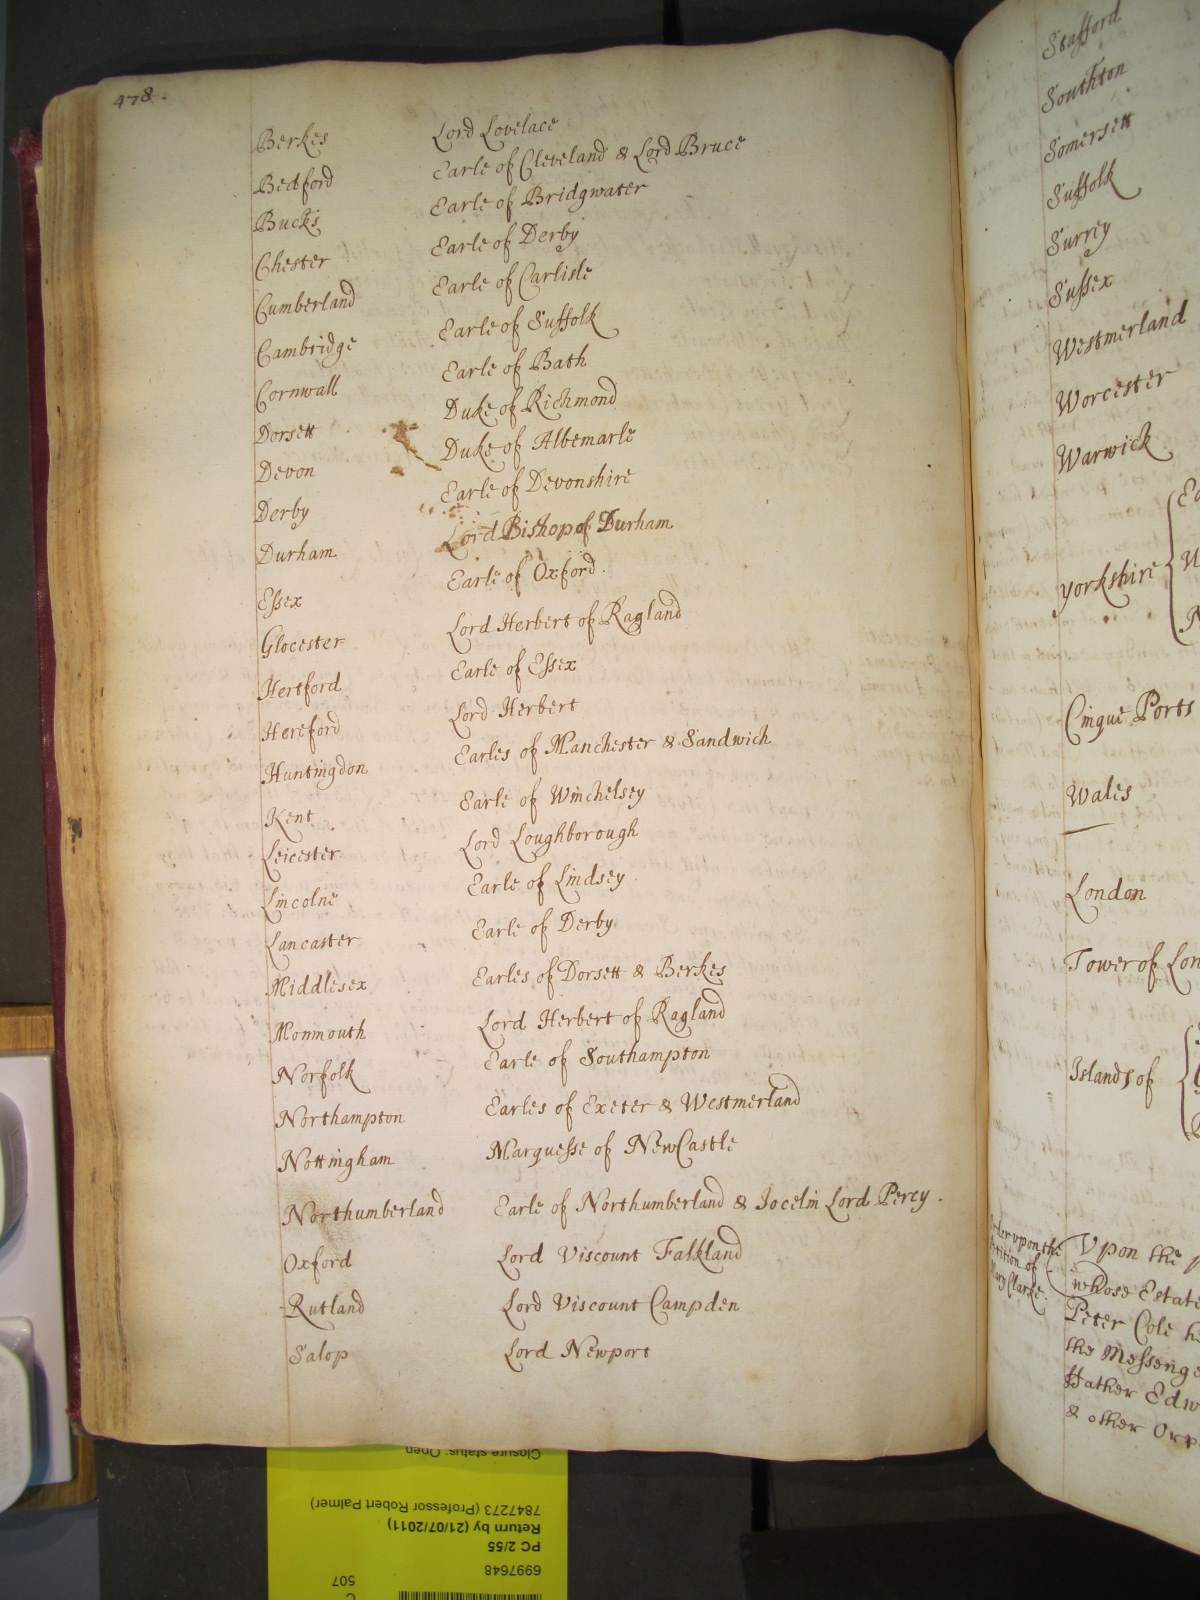 478.
Berkes Lord Lovelace
Bedford Earle of Cleveland & Lord Bruce
Bucks Earle of Bridgwater
Chester Earle of Derby
Cumberland Earle of Carlisle
Cambridge Earle of Suffolk
Cornwall Earle of Bath
Dorsett Duke of Richmond
Devon Duke of Albemarle
Derby Earle of Devonshire
Durham Lord Bishop of Durham
Essex Earle of Oxford.
Glocester Lord Herbert of Ragland
Hertford Earle of Essex
Hereford Lord Herbert
Huntingdon Earles of Manchester & Sandwich
Kent Earle of Winchelsey
Leicester Lord Loughborough
Lincolne Earle of Lindsey
Lancaster Earle of Derby
Middlesex Earles of Dorsett & Berkes
Monmouth Lord Herbert of Ragland
Norfolk Earle of Southampton
Northampton Earles of Exeter & Westmerland
Nottingham Marquesse of NewCastle
Northumberland Earle of Northumberland & Jocelin Lord Percy.
Oxford Lord Viscount Falkland
Rutland Lord Viscount Campden
Salop Lord Newport
Stafford
Southton
Somersett
Suffolk
Surrey
Sussex
Westmerland
Worcester
Warwick
Yorkshire
Cinque Ports
Wales
London
Tower of Lon
Islands of
Order upon the
Petition of
Mary Clarke.
Upon the
whose Estate
Peter Cole
the Messenge
Hather Edw
& other Orp
Closure status: Open
7847273 (Professor Robert Palmer)
Return by (21/07/2011)
PC 2/55
6997648
507